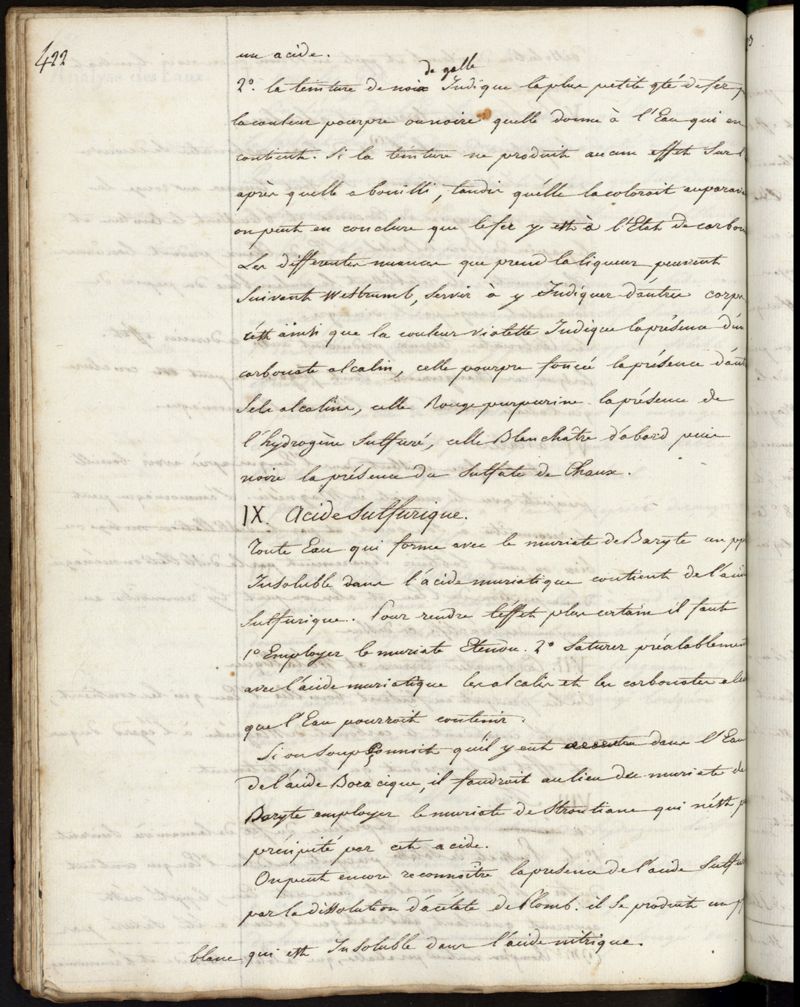 422
un acide.
2º. la teinture de noix de galle Indique la plus petite qté de fer p
la couleur pourpre ou noire quelle donne à l'Eau qui en
contient. Si la teinture ne produit aucun effet Sur l
après quelle a bouilli, tandis qu'elle la coloroit auparava
on peut en conclure que le fer y est à l'Etat de carbon
Les differentes nuances que prend la liqueur peuvent
Suivant Westrumb, Servir à y Indiquer d'autres corps
c'est ainsi que la couleur violette Indique la présence d'un
carbonate alcalin, celle pourpre foncé la présence d'aut
Sels alcalins, celle Rouge purpurine la présence de
l'hydrogène Sulfuré, celle Blanchâtre d'abord puis
noire la présence du Sulfate de Chaux.
IX. Acide Sulfurique.
Toute Eau qui forme avec le muriate de Baryte un pp
Insoluble dans l'acide muriatique contient de l'aci
Sulfurique. Pour rendre l'effet plus certain il faut
1º Employer le muriate Etendu. 2º Saturer préalablement
avec l'acide muriatique les alcalis et les carbonates alc
que l'Eau pourroit contenir.
Si on Soupçonnoit qu'il y eut dans l'Eau
de l'acide Boracique, il faudroit au lieu du muriate de
Baryte employer le muriate de Strontiane qui n'est p
précipité par cet acide.
On peut encore reconnoître la presence de l'acide Sulfu
par la dissolution d'acétate de Plomb. il Se produit un p
blanc qui est Insoluble dans l'acide nitrique.